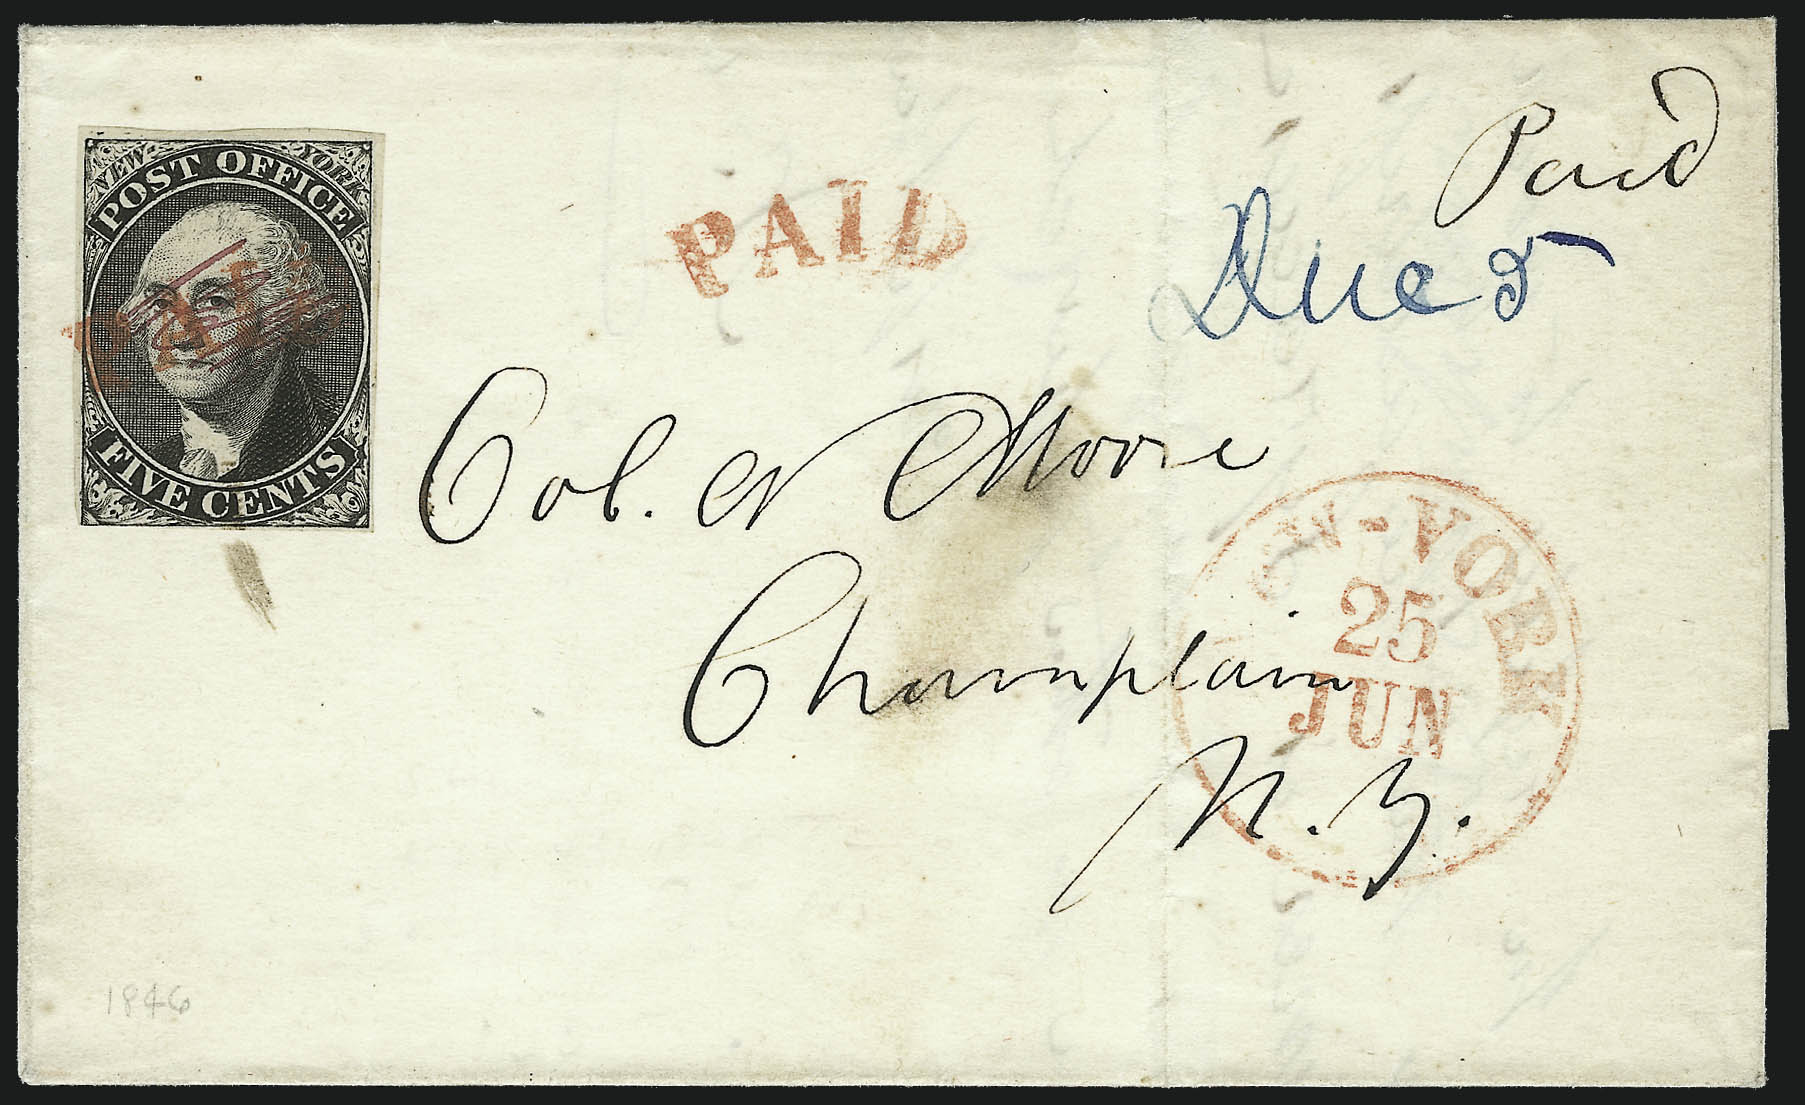 NEW-YORK
POST OFFICE
PAID
FIVE CENTS
PAID
Paid
Due 5
Col. N Moore
Champlain
N.Y.
EW-YORK
25
JUN
1846